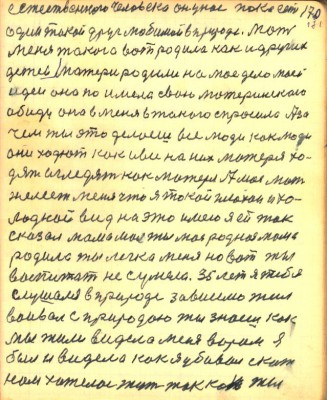 естественного человека он у нас пока есть 170
171
один такой друг любимой в природе. Мать
меня такого вот родила как и других
детей / матери родили на мое дело мо ей
идеи она по имела свою материнского
обиду она в меня в такого спросила А за
чем ты это делаеш все люди как люди
они ходют как и вы на них матеря хо
дят и глядят как матеря А моя мать
жалеет меня что я такой плохой и хо-
лодной вид на это имею я ей так
сказал мама моя ты моя родная мама
родила ты легка меня но вот ты
воспитат не сумела. 35 лет я тебя
слушался в природе зависимо жил
воевал с природою ты знаеш как
мы жили видела меня вором я
был и видела как я убивал скат
нам хотелос жит так как ты